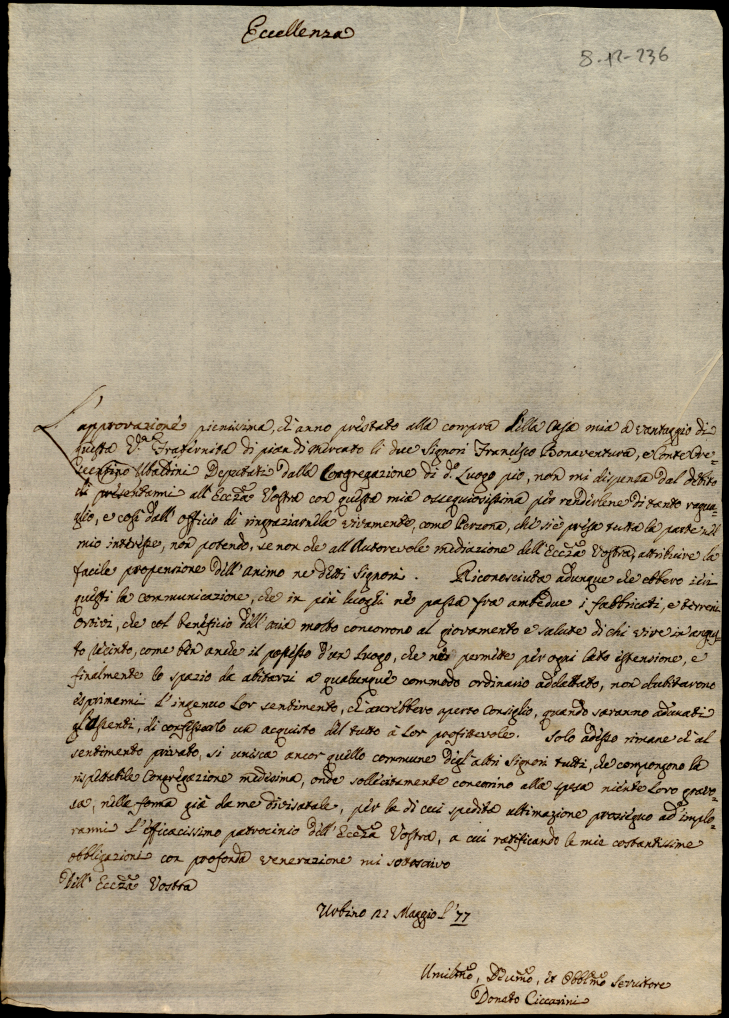 Eccellenza
8-12-236
L'approvazione pienissima, ch'anno prestato alla compra della Casa mia a vantaggio di
questa V.da Fraternità di pian di Mercato li due Signori Francesco Bonaventura, e Conte
Ubaldini Deputati dalla Congregazione di d.o Luogo pio, non mi dispensa dal debito
di presentarmi all'Eccza Vostra con questa mia ossequiosissima per renderlene di tanto ragua-
glio, e così dall'officio di ringraziarnela vivamente, come Perzona, che si è presa tutta la parte nel
mio interesse, non potendo, se non che all'Autorevole mediazione dell'Eccza Vostra, attribuire la
facile propenzione dell'animo ne detti Signori. Riconosciuta adunque che ebbero
questi la communicazione, che in più luoghi ne passa fra ambedue i fabbricati, e terreni
Ortivi, che col beneficio dell'aria molto concorrono al giovamento e salute di chi vive in
recinto, come ben anche il possesso d'un Luogo, che ne permette per ogni lato estensione, e
finalmente lo spazio da abitarzi a qualunque commodo ordinario addettato, non dubitarono
esprimermi l'ingenuo Lor sentimento, ch'avrebbero aperto Consiglio, quando saranno adunati
gl'Assenti, di confessarlo un acquisto del tutto à Lor profittevole. Solo adesso rimane ch'al
sentimento privato, si unisca ancor quello commune degl'altri Signori tutti, che compongono la
rispettabile Congregazione medesima, onde sollecitamente concorrino alla spesa niente Loro gravo-
sa, nella forma già da me divisatale, per la di cui spedita ultimazione proseguo ad implo-
rarmi l'efficacissimo patrocinio dell'Eccza Vostra, a cui ratificando le mie costantissime
obbligazioni con profonda venerazione mi sottoscrivo
Dell'Eccza Vostra
Urbino 22 Maggio l'77
Umilmo, Devmo, et Obblmo Servitore
Donato Ciccarini